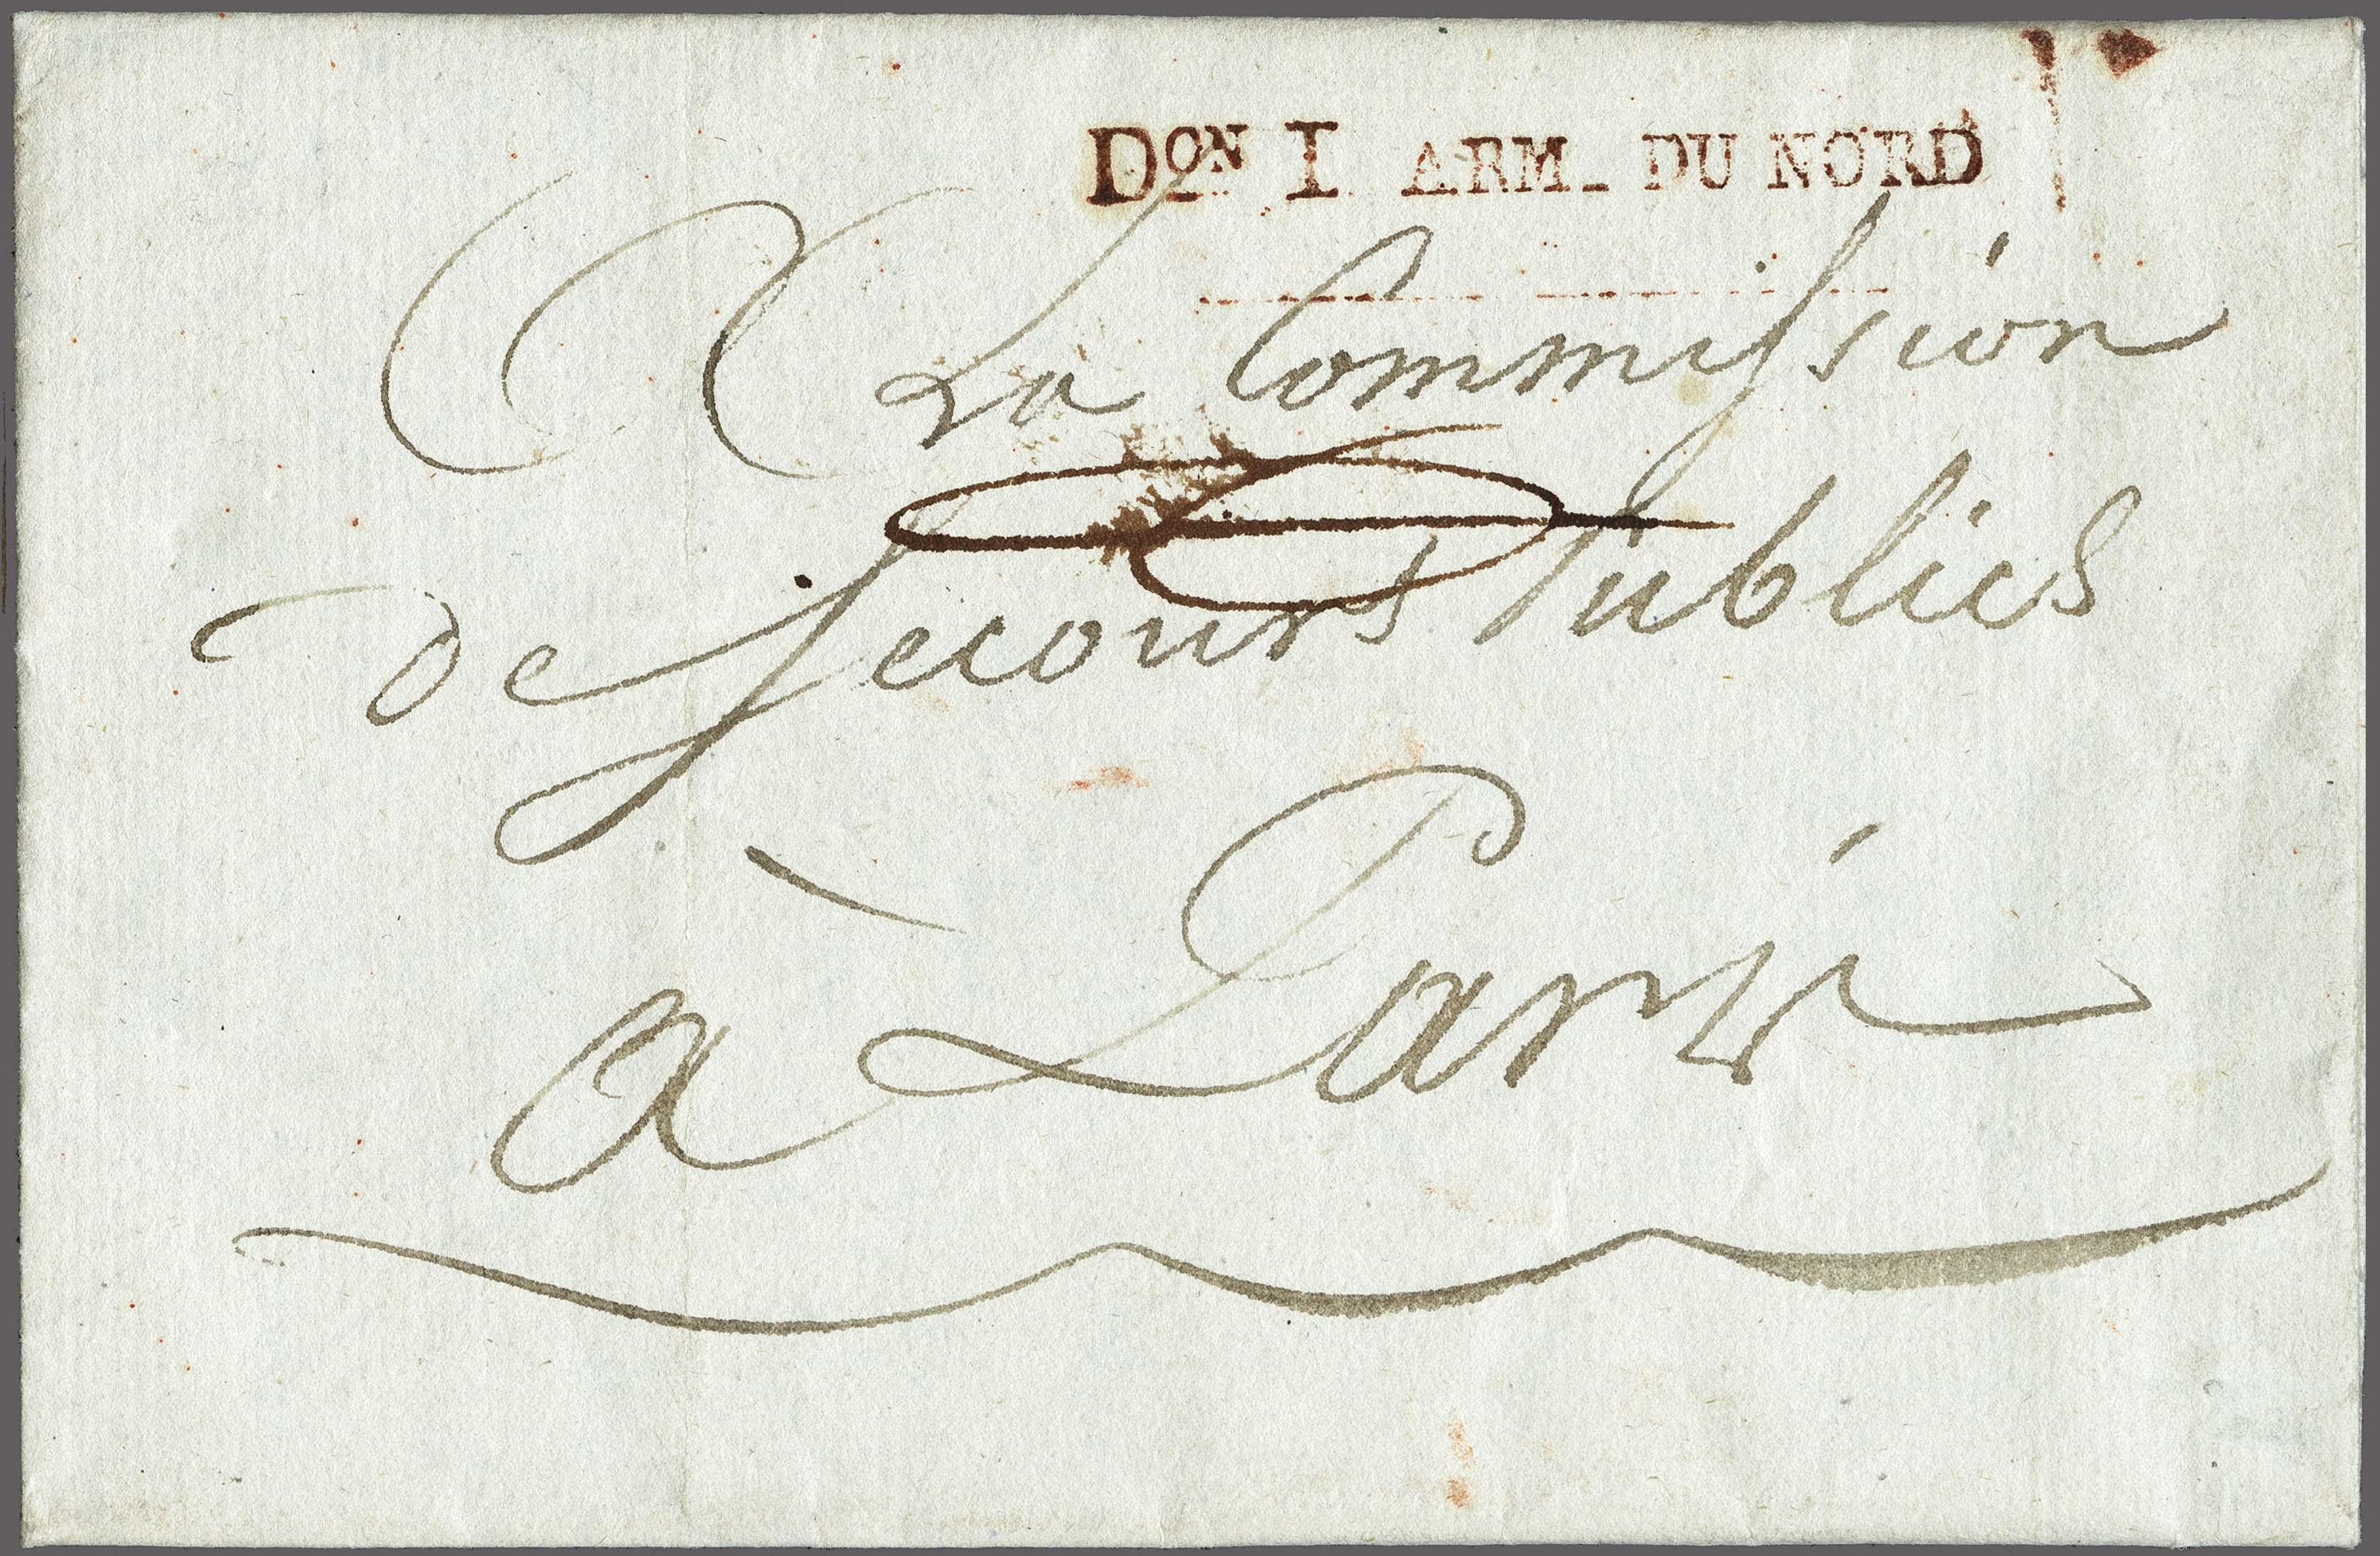 Dᴼᴺ I ARM. DU NORD
A La Commission
de secours Publics
à Paris